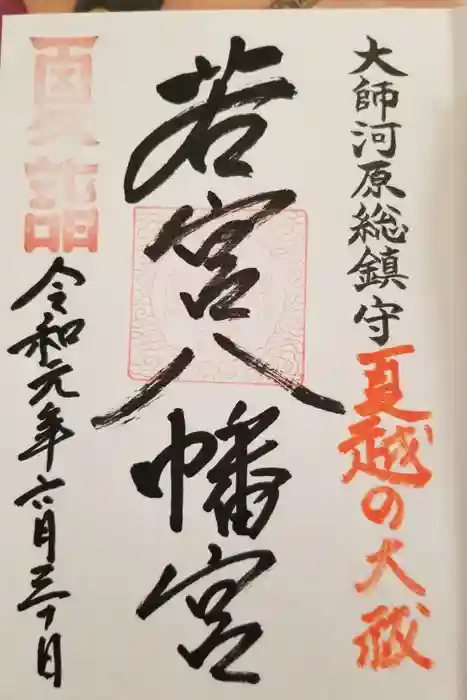 大師河原総鎮守
夏越の大祓
若宮八幡宮
参詣
令和元年六月三十日